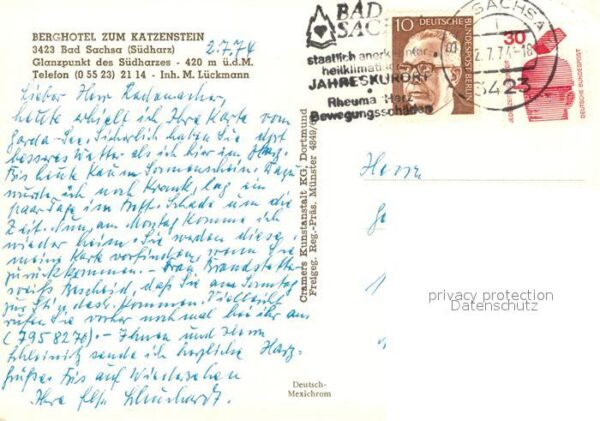 BERGHOTEL ZUM KATZENSTEIN
3423 Bad Sachsa (Südharz)
Glanzpunkt des Südharzes - 420 m ü.d.M.
Telefon (0 55 23) 21 14 - Inh. M. Lückmann
2.7.74
Lieber Herr Rademacher,
heute erhielt ich Ihre Karte vom
Garda-See. Sicherlich haben Sie dort
besseres Wetter als ich hier im Harz.
Bis heute kaum Sonnenschein. Dazu
wurde ich noch krank, lag ein
paar Tage im Bett. Schade um die
Zeit. Nun, am Montag komme ich
wieder heim. Sie werden diese
meine Karte vorfinden, wenn Sie
zurückkommen. - Frau
weiß Bescheid, daß Sie am Sonntag
zur kommen. Vielleicht
rufen Sie vorher noch mal bei ihr an
(7958276) - Ihnen und Herrn
sende ich herzliche Harz-
grüße. Bis auf Wiedersehen
Ihre
Cramers Kunstanstalt KG, Dortmund
Freigeg. Reg.-Präs. Münster 4849/
Deutsch-
Mexichrom
BAD
SACHSA
staatlich anerkannter
heilklimatischer
JAHRESKURORT
Rheuma Herz
Bewegungsschäden
10
DEUTSCHE
BUNDESPOST BERLIN
SACHSA
2.7.74-18
3423
30
JEDERZEIT SICHERHEIT
DEUTSCHE BUNDESPOST
Herrn
privacy protection
Datenschutz